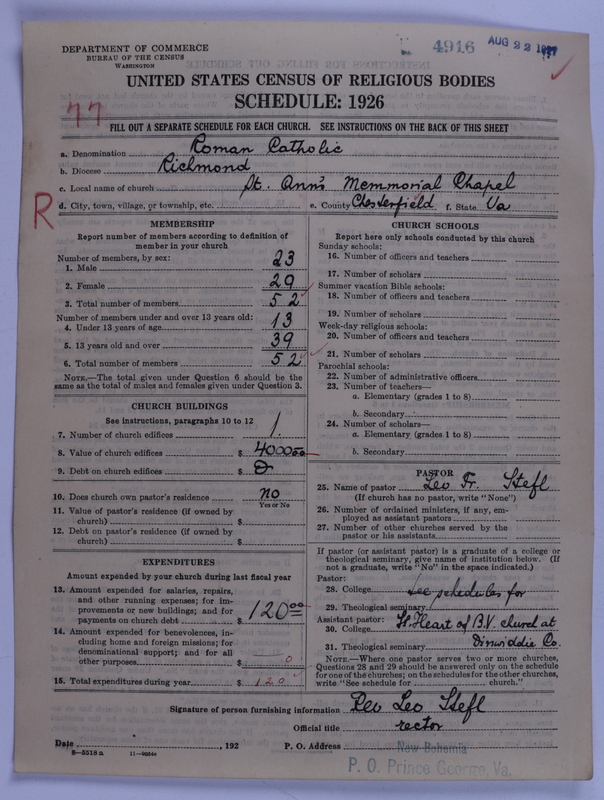 DEPARTMENT OF COMMERCE
BUREAU OF THE CENSUS
WASHINGTON
4916
AUG 22 1927
UNITED STATES CENSUS OF RELIGIOUS BODIES
SCHEDULE: 1926
77
FILL OUT A SEPARATE SCHEDULE FOR EACH CHURCH. SEE INSTRUCTIONS ON THE BACK OF THIS SHEET
a. Denomination Roman Catholic
b. Diocese Richmond
c. Local name of church St. Ann's Memmorial Chapel
R
d. City, town, village, or township, etc. e. County Chesterfield f. State Va
MEMBERSHIP
Report number of members according to definition of member in your church
Number of members, by sex:
1. Male 23
2. Female 29
3. Total number of members 52
Number of members under and over 13 years old:
4. Under 13 years of age 13
5. 13 years old and over 39
6. Total number of members 52
NOTE.—The total given under Question 6 should be the same as the total of males and females given under Question 3.
CHURCH BUILDINGS
See instructions, paragraphs 10 to 12
7. Number of church edifices 1
8. Value of church edifices $ 4000.00
9. Debt on church edifices $ 0
10. Does church own pastor's residence no
Yes or No
11. Value of pastor's residence (if owned by church) $
12. Debt on pastor's residence (if owned by church) $
EXPENDITURES
Amount expended by your church during last fiscal year
13. Amount expended for salaries, repairs, and other running expenses; for improvements or new buildings; and for payments on church debt $ 120.00
14. Amount expended for benevolences, including home and foreign missions; for denominational support; and for all other purposes $ 0
15. Total expenditures during year $ 120
CHURCH SCHOOLS
Report here only schools conducted by this church
Sunday schools:
16. Number of officers and teachers
17. Number of scholars
Summer vacation Bible schools:
18. Number of officers and teachers
19. Number of scholars
Week-day religious schools:
20. Number of officers and teachers
21. Number of scholars
Parochial schools:
22. Number of administrative officers
23. Number of teachers—
a. Elementary (grades 1 to 8)
b. Secondary
24. Number of scholars—
a. Elementary (grades 1 to 8)
b. Secondary
PASTOR
25. Name of pastor Leo Fr. Stefl
(If church has no pastor, write "None")
26. Number of ordained ministers, if any, employed as assistant pastors
27. Number of other churches served by the pastor or his assistants
If pastor (or assistant pastor) is a graduate of a college or theological seminary, give name of institution below. (If not a graduate, write "No" in the space indicated.)
Pastor:
28. College see schedules for
29. Theological seminary
Assistant pastor:
30. College St. Heart of B.V. church at
31. Theological seminary Dinwiddie Co.
NOTE.—Where one pastor serves two or more churches, Questions 28 and 29 should be answered only on the schedule for one of the churches; on the schedules for the other churches, write "See schedule for church."
Signature of person furnishing information Rev Leo Stefl
Official title rector
Date , 192 P. O. Address New Bohemia
8—5518 a 11—9034e P. O. Prince George, Va.